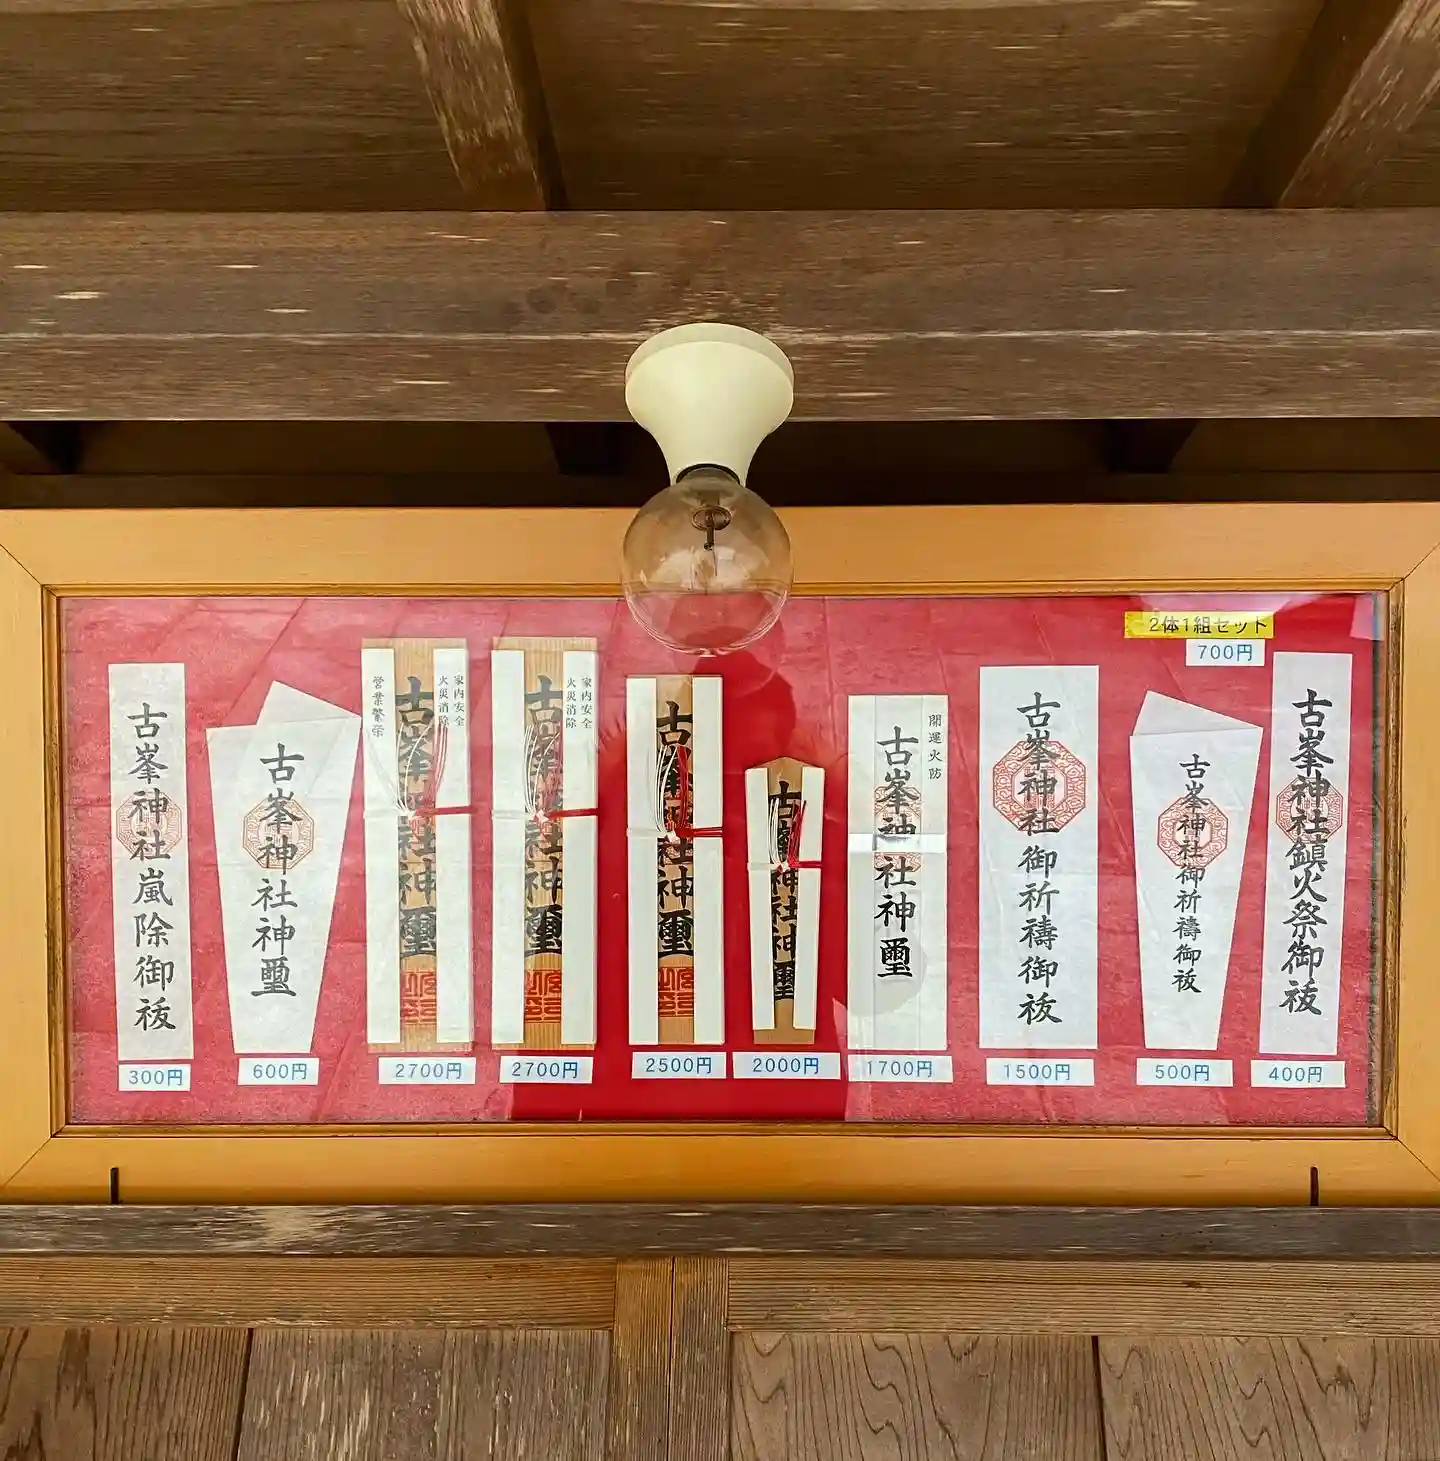 2体1組セット
700円
古峯神社嵐除御祓
300円
古峯神社神璽
600円
営業繁栄
古峯神社神璽
家内安全
火災消除
2700円
古峯神社神璽
家内安全
火災消除
2700円
古峯神社神璽
2500円
古峯神社神璽
2000円
開運火防
古峯神社神璽
1700円
古峯神社御祈禱御祓
1500円
古峯神社御祈禱御祓
500円
古峯神社鎮火祭御祓
400円